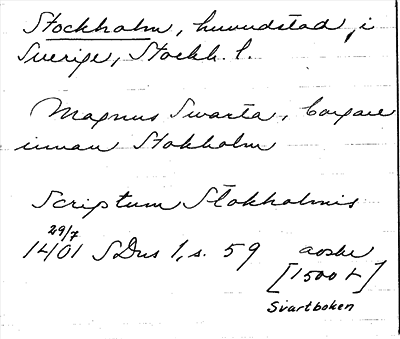 Stockholm, huvudstad i
Sverige, Stockh. l.
Magnus Swarta, borgare
innan Stokholm
Scriptum Stokholmis
29/7
1401 SDns 1, s. 59 avskr
[1500 t]
Svartboken